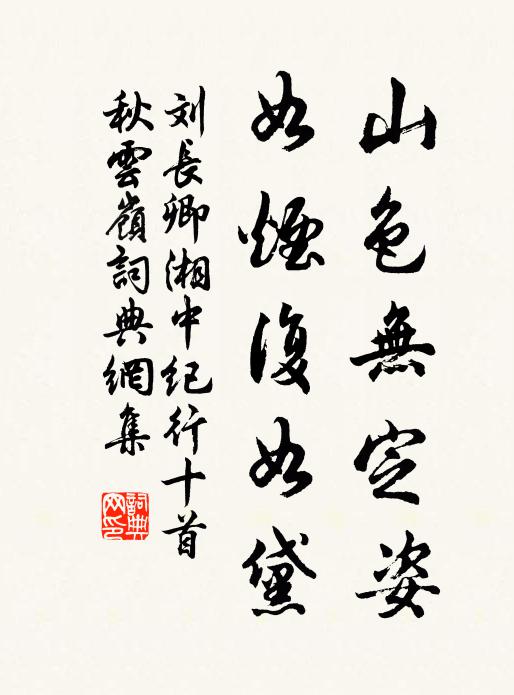 山色無定姿
如煙復如黛
刘長卿湘中纪行十首
秋雲嶺詞典網集
詞典
网印